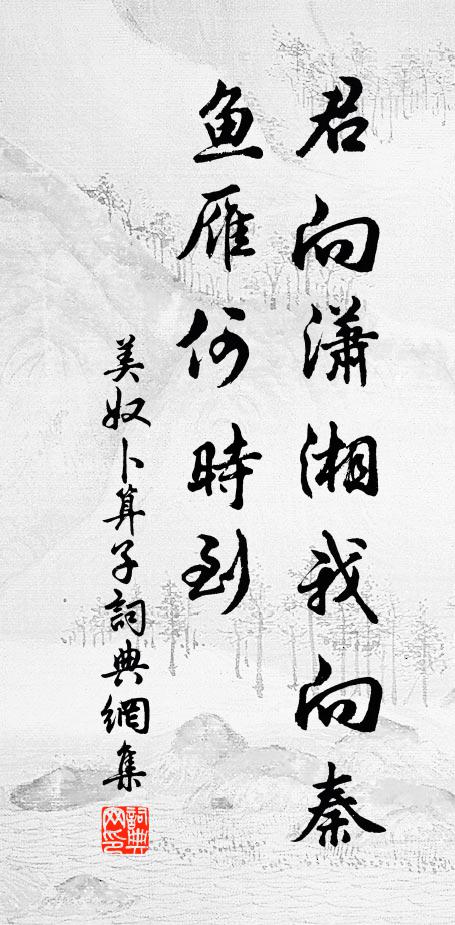 君向瀟湘我向秦
鱼雁何時到
美奴卜算子詞典網集
詞典网印